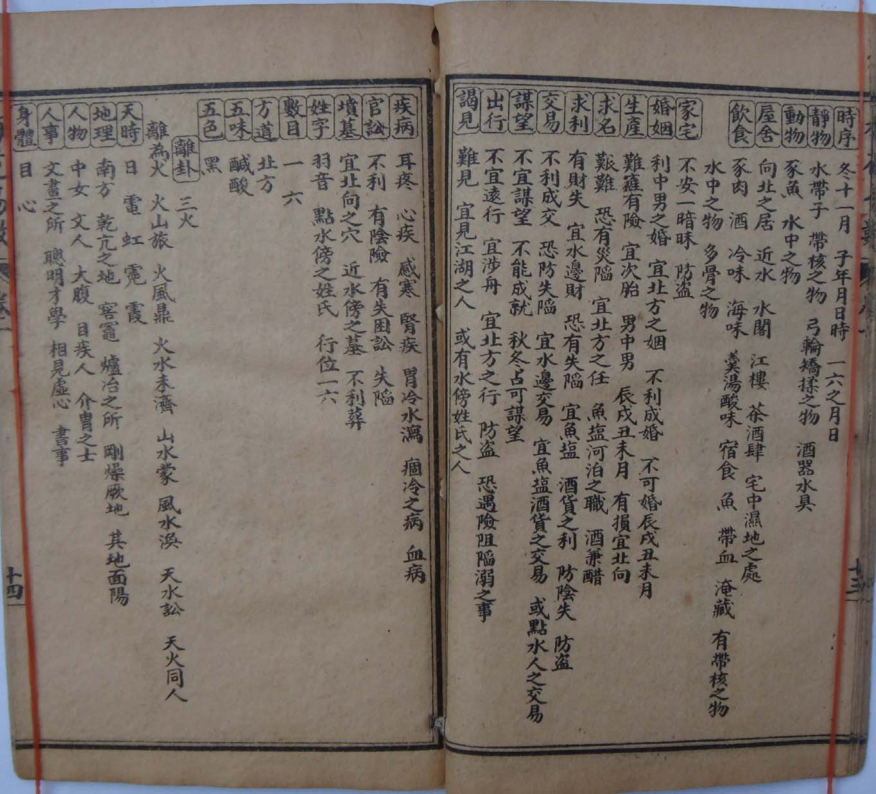 時序 冬十一月 子年月日時 一六之月日
靜物 水帶子 帶核之物 弓輪矯揉之物 酒器水具
動物 豕魚 水中之物
屋舍 向北之居 近水 水閣 江樓 茶酒肆 宅中濕地之處
飲食 豕肉 酒 冷味 海味 羹湯酸味 宿食 魚 帶血 淹藏 有帶核之物
水中之物 多骨之物
家宅 不安一暗昧 防盜
婚姻 利中男之婚 宜北方之姻 不利成婚 不可婚辰戌丑未月
生產 難薩有險 宜次胎 男中男 辰戌丑未月 有損宜北向
求名 艱難 恐有災陷 宜北方之任 魚塩河泊之職 酒兼醋
求利 有財失 宜水邊財 恐有失陷 宜魚塩 酒貨之利 防陰失 防盜
交易 不利成交 恐防失陷 宜水邊交易 宜魚塩酒貨之交易 或點水人之交易
謀望 不宜謀望 不能成就 秋冬占可謀望
出行 不宜遠行 宜涉舟 宜北方之行 防盜 恐遇險阻陷溺之事
謁見 難見 宜見江湖之人 或有水傍姓氏之人
十三
疾病 耳疼 心疾 感寒 腎疾 胃冷水瀉 痼冷之病 血病
官訟 不利 有陰險 有失困訟 失陷
墳墓 宜北向之穴 近水傍之墓 不利葬
姓字 羽音 點水傍之姓氏 行位一六
數目 一 六
方道 北方
五味 鹹酸
五色 黑
離卦 三火
離為火 火山旅 火風鼎 火水未濟 山水蒙 風水渙 天水訟 天火同人
天時 日 電 虹 霓 霞
地理 南方 乾亢之地 窰竈 爐冶之所 剛燥厥地 其地面陽
人物 中女 文人 大腹 目疾人 介胄之士
人事 文書之所 聰明才學 相見虛心 書事
身體 目 心
十四